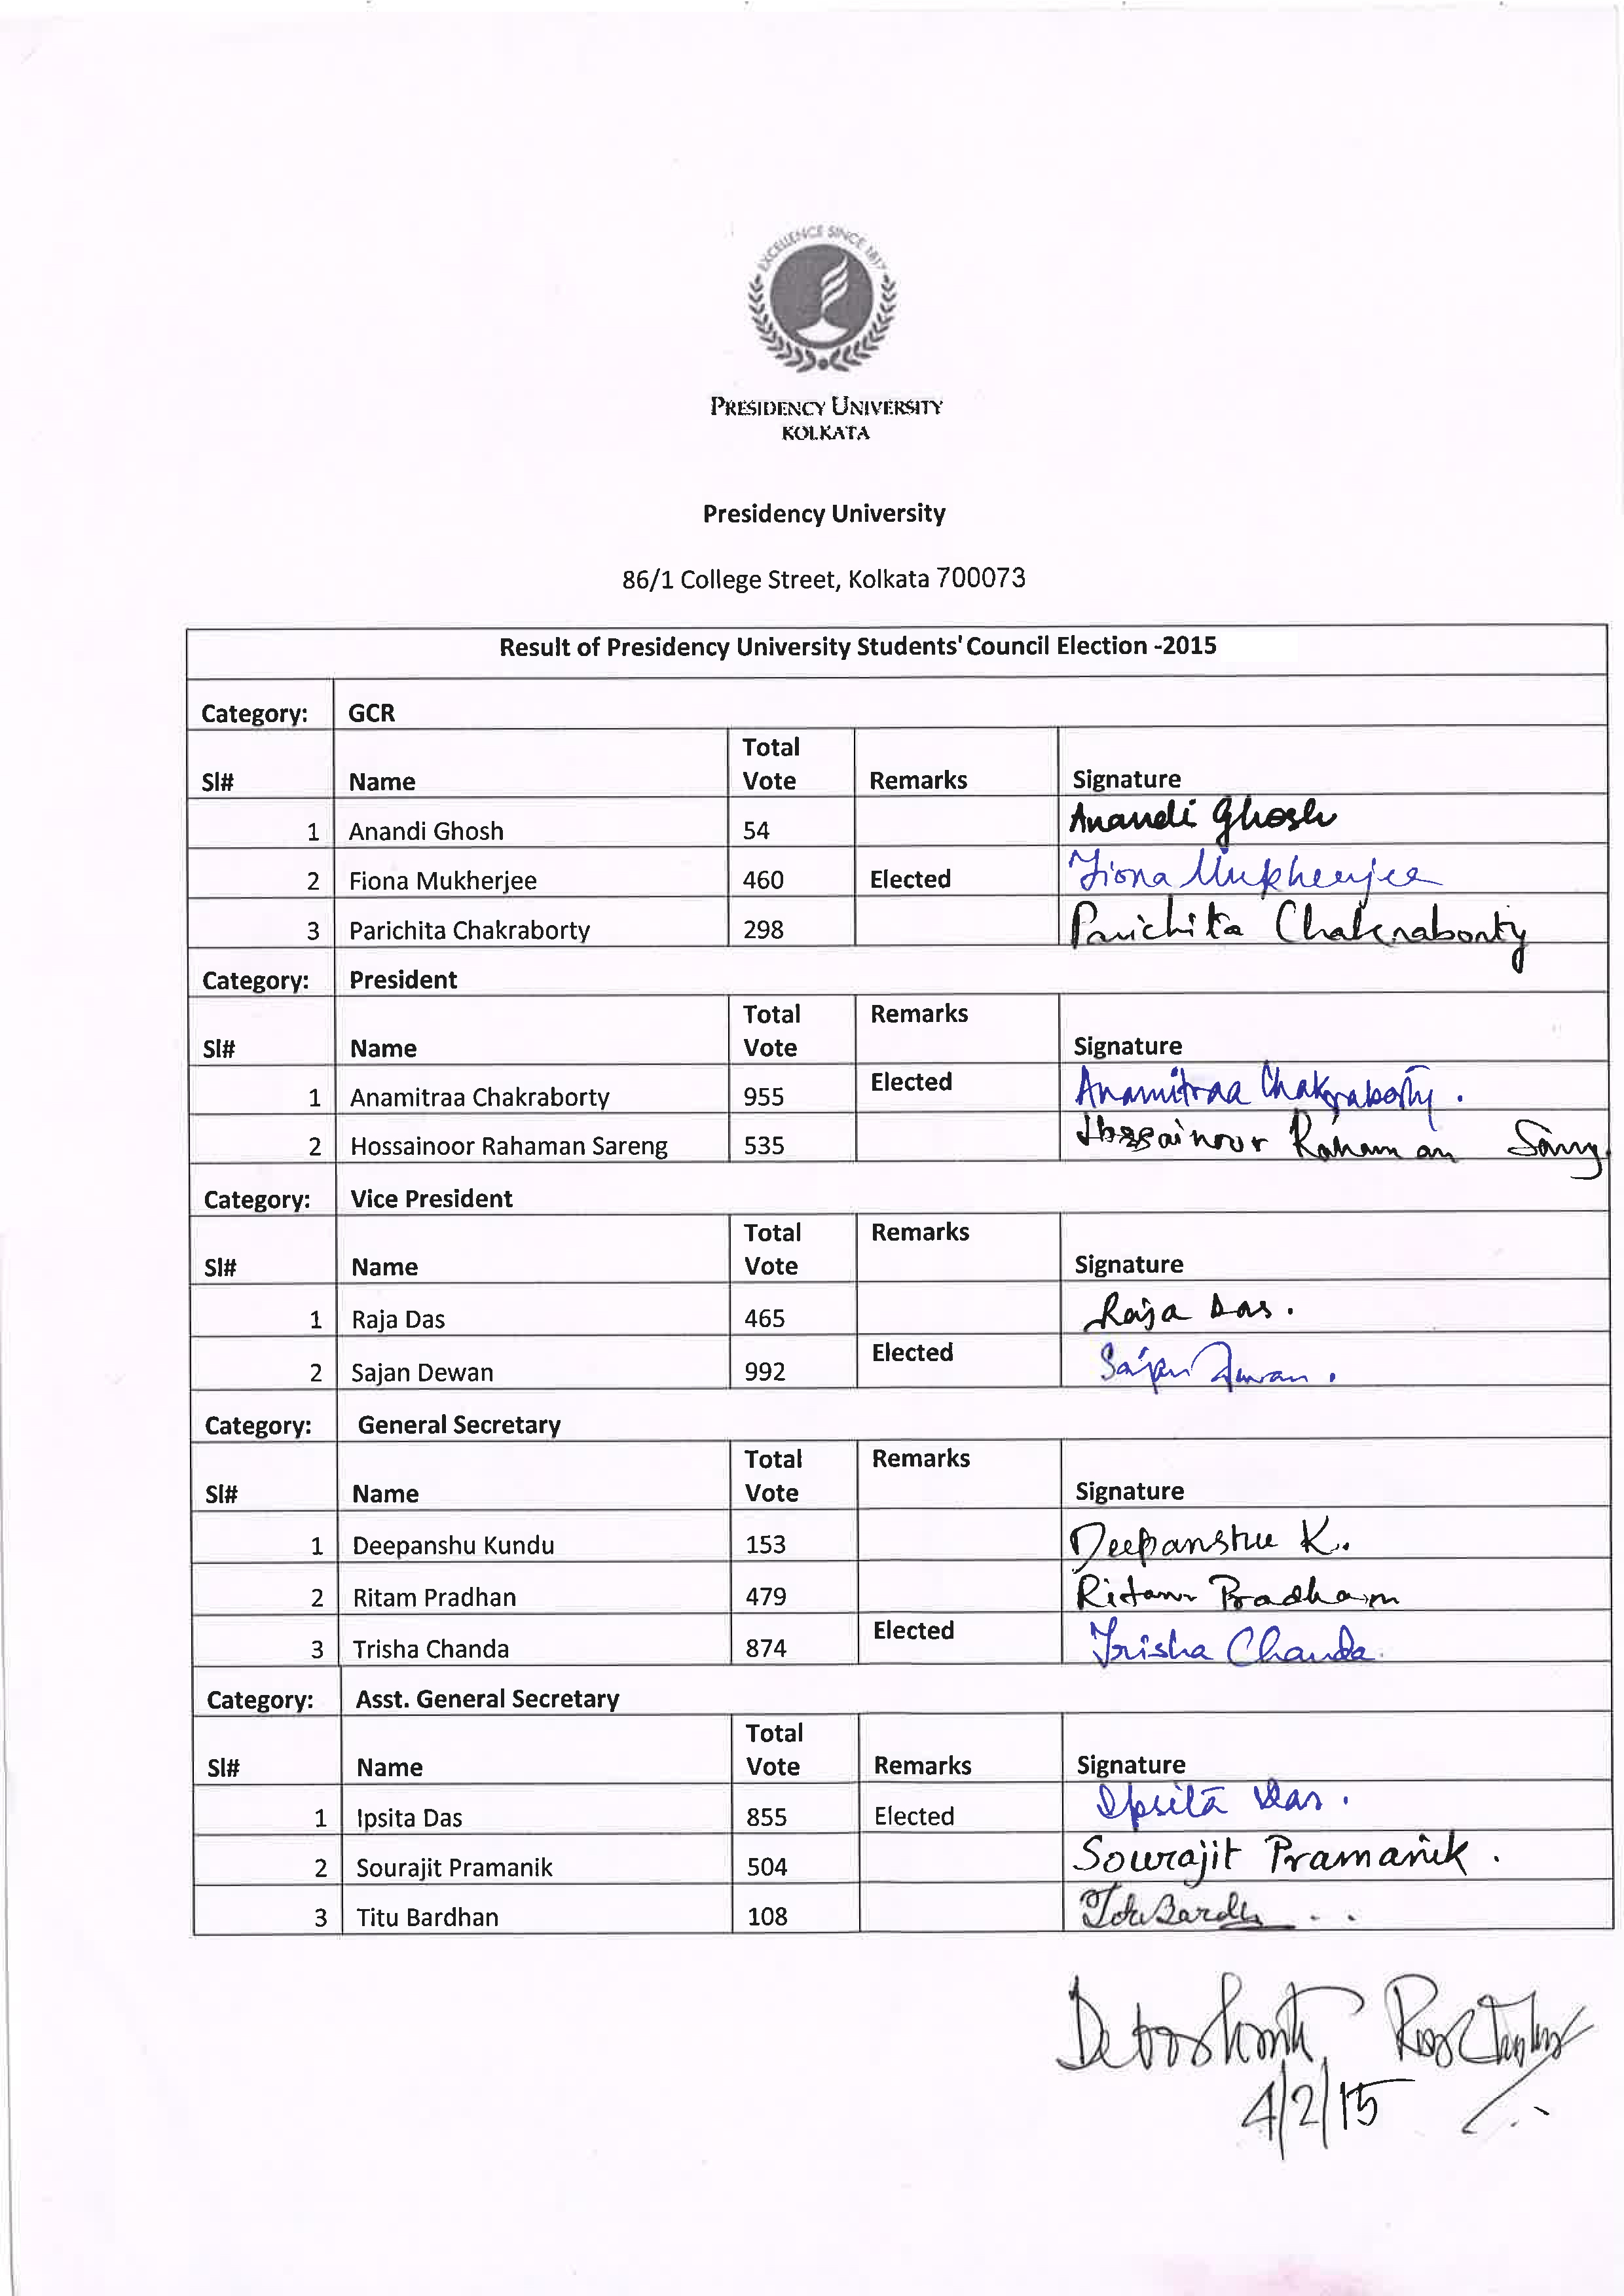 EXCELLENCE SINCE 1817
PRESIDENCY UNIVERSITY
KOLKATA
Presidency University
86/1 College Street, Kolkata 700073
Result of Presidency University Students' Council Election -2015
Category: GCR
Sl# Name Total Vote Remarks Signature
1 Anandi Ghosh 54 Anandi Ghosh
2 Fiona Mukherjee 460 Elected Fiona Mukherjee
3 Parichita Chakraborty 298 Parichita Chakraborty
Category: President
Sl# Name Total Vote Remarks Signature
1 Anamitraa Chakraborty 955 Elected Anamitraa Chakraborty.
2 Hossainoor Rahaman Sareng 535 Hossainoor Rahaman
Category: Vice President
Sl# Name Total Vote Remarks Signature
1 Raja Das 465 Raja Das.
2 Sajan Dewan 992 Elected Sajan Dewan.
Category: General Secretary
Sl# Name Total Vote Remarks Signature
1 Deepanshu Kundu 153 Deepanshu K.
2 Ritam Pradhan 479 Ritam Pradhan
3 Trisha Chanda 874 Elected Trisha Chanda.
Category: Asst. General Secretary
Sl# Name Total Vote Remarks Signature
1 Ipsita Das 855 Elected Ipsita Das.
2 Sourajit Pramanik 504 Sourajit Pramanik.
3 Titu Bardhan 108
4/2/15